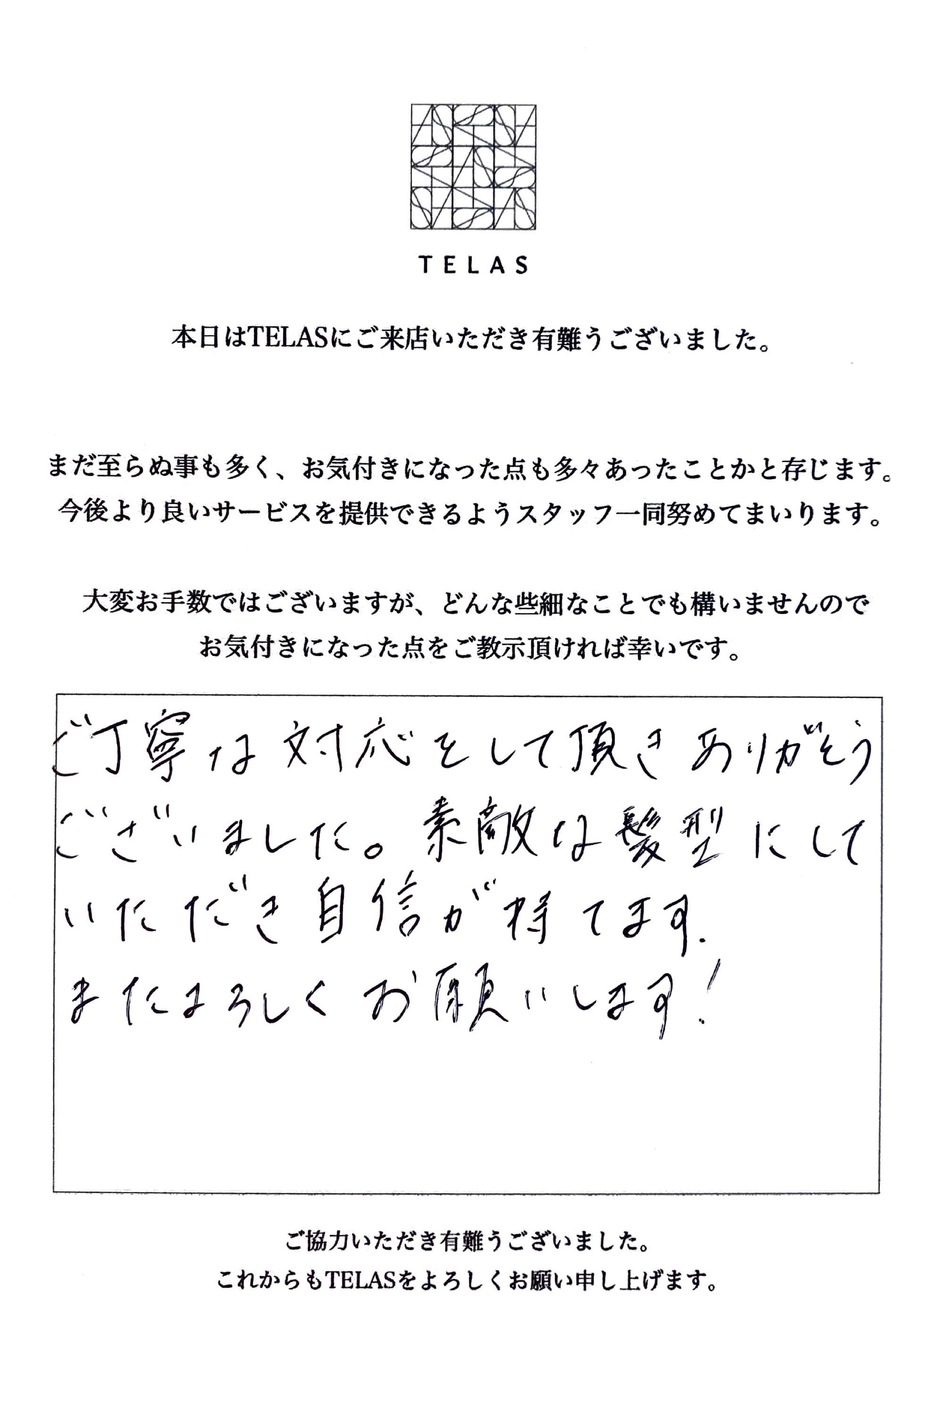 TELAS
本日はTELASにご来店いただき有難うございました。
まだ至らぬ事も多く、お気付きになった点も多々あったことかと存じます。
今後より良いサービスを提供できるようスタッフ一同努めてまいります。
大変お手数ではございますが、どんな些細なことでも構いませんので
お気付きになった点をご教示頂ければ幸いです。
ご丁寧な対応をして頂きありがとう
ございました。素敵な髪型にして
いただき自信が持てます.
またよろしくお願いします!
ご協力いただき有難うございました。
これからもTELASをよろしくお願い申し上げます。